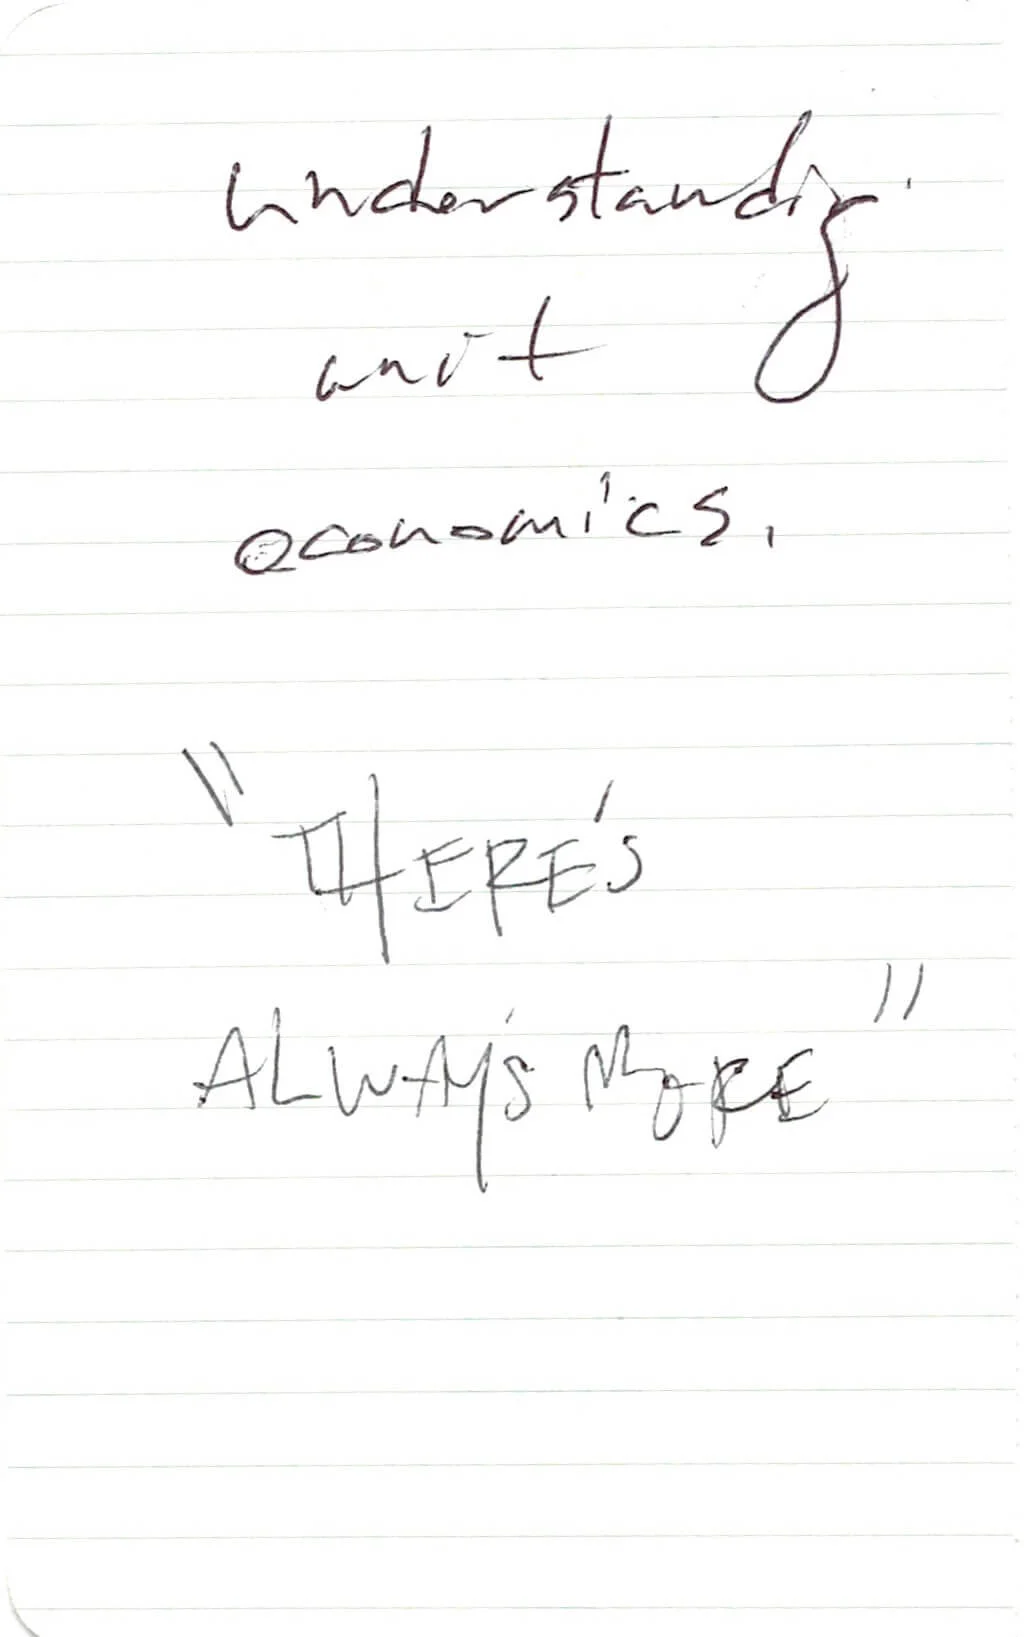 understanding
unit
economics.
"THERE'S
ALWAYS MORE"